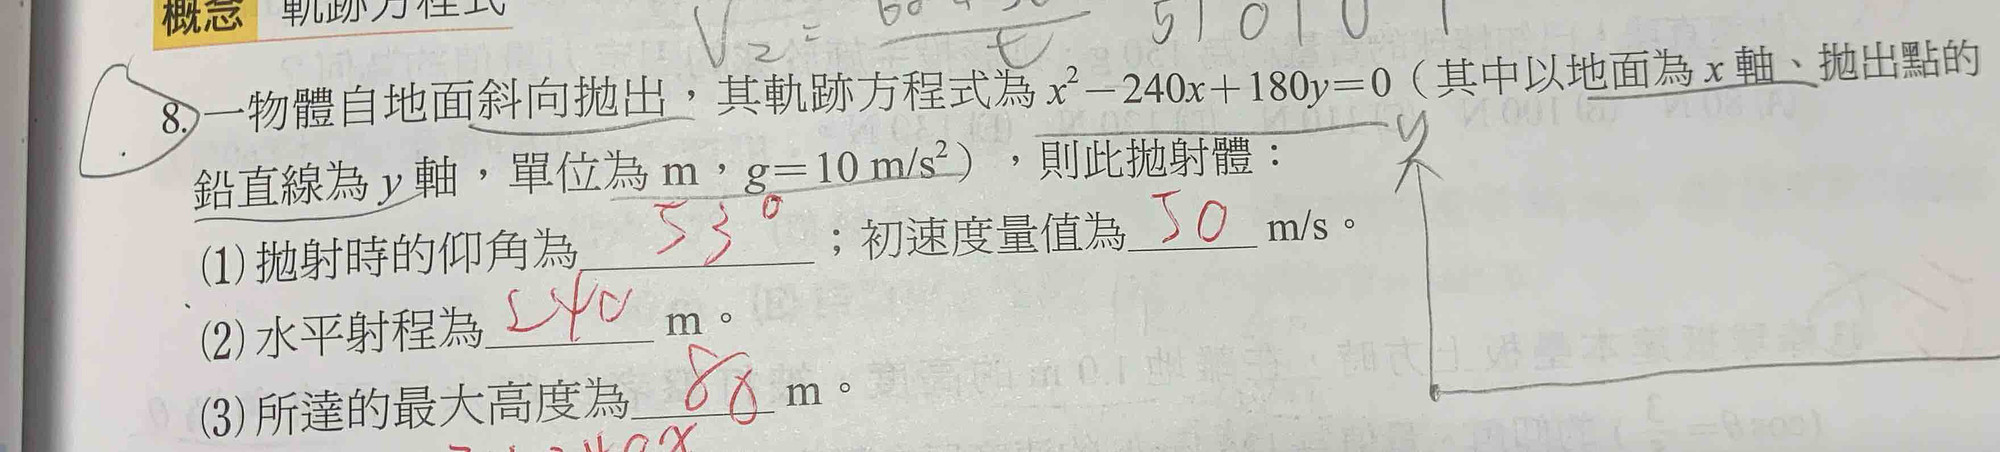 概念 軌跡方程式
V₂ =
t
5 1 0 1 0 1
8. 一物體自地面斜向拋出，其軌跡方程式為 x²－240x＋180y＝0（其中以地面為 x 軸、拋出點的
鉛直線為 y 軸，單位為 m，g＝10 m/s²），則此拋射體：
y
(1) 拋射時的仰角為 53° ；初速度量值為 50 m/s。
(2) 水平射程為 240 m。
(3) 所達的最大高度為 80 m。